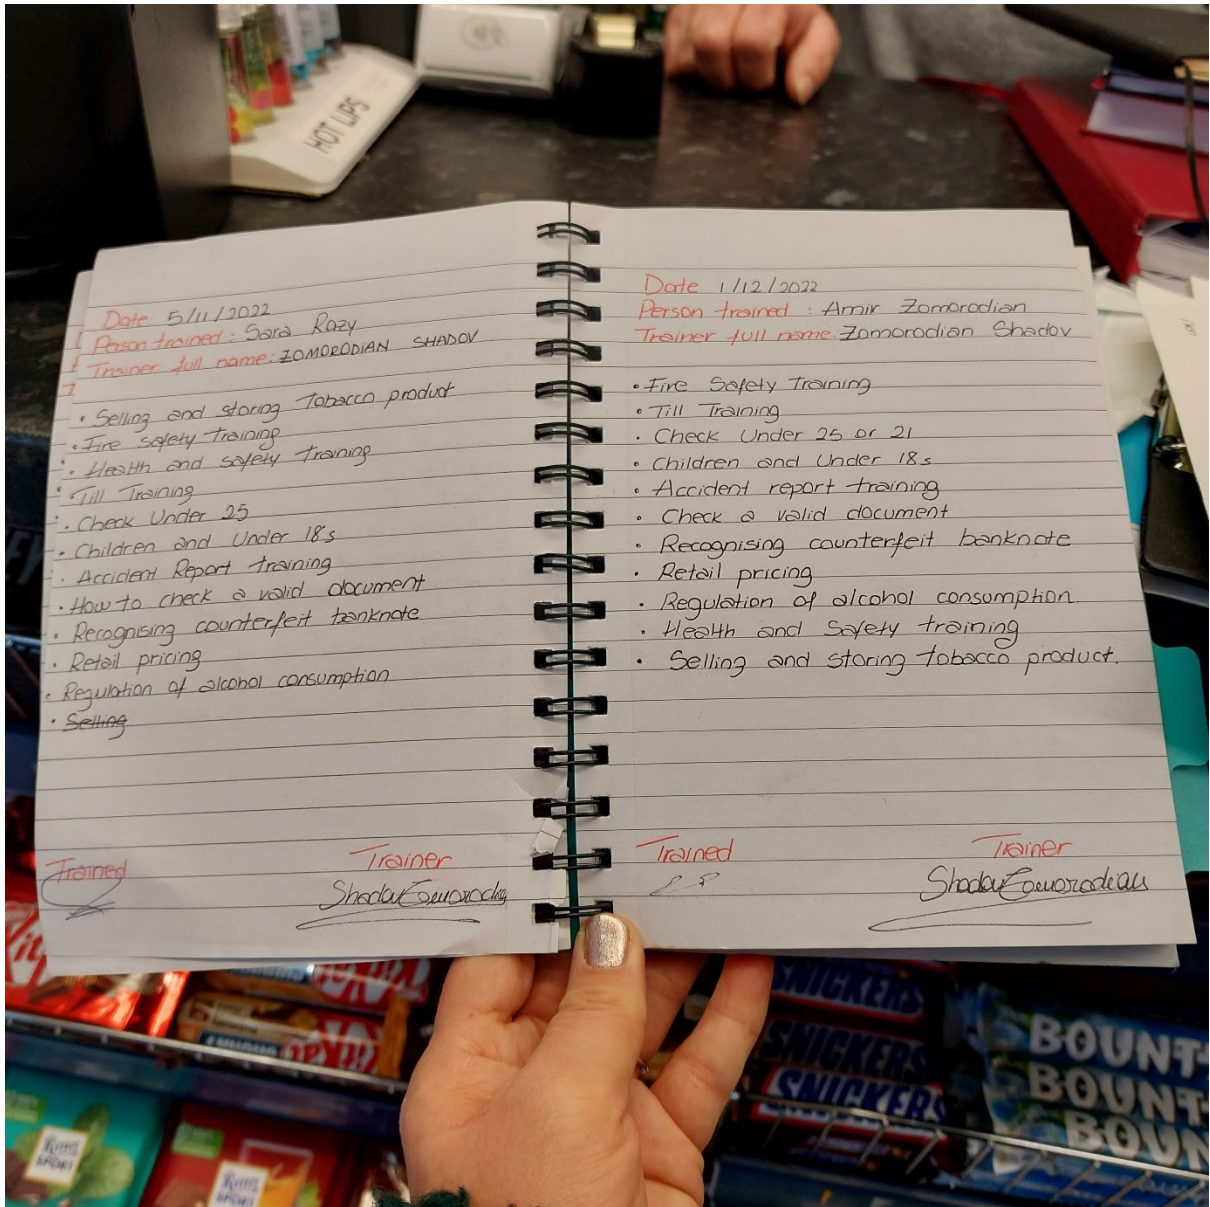 HOT LIPS
Date 5/11/2022
Person trained : Sara Razy
Trainer full name: ZOMORODIAN SHADOV
• Selling and storing Tobacco product
• Fire safety training
• Health and safety training
• Till Training
• Check Under 25
• Children and Under 18s
• Accident Report training
• How to check a valid document
• Recognising counterfeit banknote
• Retail pricing
• Regulation of alcohol consumption
• Selling
Trained
Trainer
Date 1/12/2022
Person trained : Amir Zomorodian
Trainer full name: Zomorodian Shadov
• Fire Safety Training
• Till Training
• Check Under 25 or 21
• Children and Under 18s
• Accident report training
• Check a valid document
• Recognising counterfeit banknote
• Retail pricing
• Regulation of alcohol consumption.
• Health and Safety training
• Selling and storing tobacco product.
Trained
Trainer
SNICKERS
SNICKERS
SNICKERS
BOUNT
BOUNT
BOUN
Ritter
SPORT
Ritter
SPORT